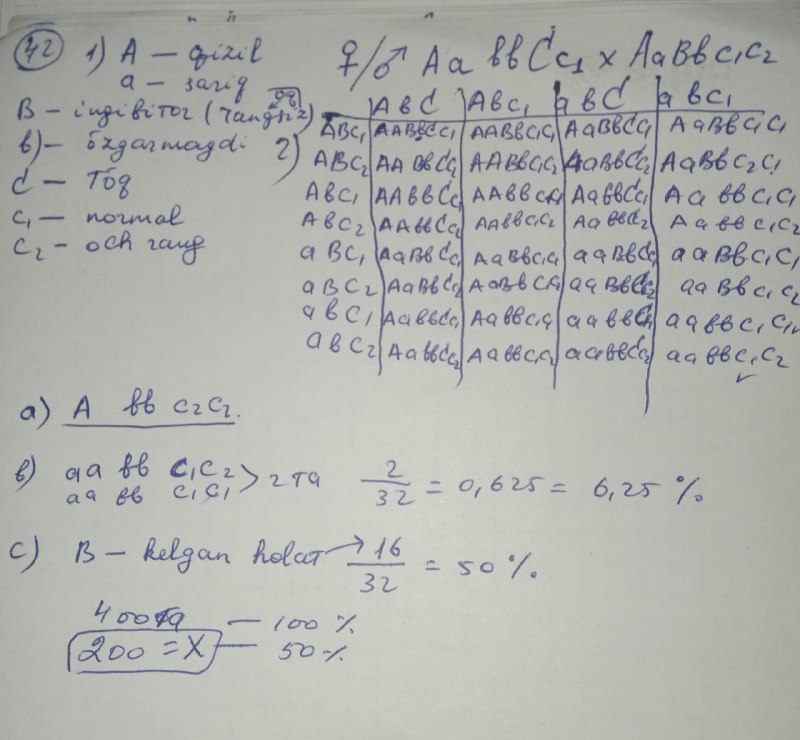 42 1) A — qizil
a — sariq
B — ingibitor (rangsiz) oq
b) — özgarmagdi
C — Töq
C₁ — normal
C₂ — och rang
♀/♂ Aa bb CC₁ x AaBb C₁C₂
2)
AbC AbC₁ abC abC₁
ABC₁ AABbCC₁ AABbC₁C₁ AaBbCC₁ AaBbC₁C₁
ABC₂ AABbCC₂ AABbC₁C₂ AaBbCC₂ AaBbC₂C₁
AbC₁ AAbbCC₁ AAbbC₁C₁ AabbCC₁ AabbC₁C₁
AbC₂ AAbbCC₂ AAbbC₁C₂ AabbCC₂ AabbC₁C₂
aBC₁ AaBbCC₁ AaBbC₁C₁ aaBbCC₁ aaBbC₁C₁
aBC₂ AaBbCC₂ AaBbC₁C₂ aaBbCC₂ aaBbC₁C₂
abC₁ AabbCC₁ AabbC₁C₁ aabbCC₁ aabbC₁C₁
abC₂ AabbCC₂ AabbC₁C₂ aabbCC₂ aabbC₁C₂
a) A bb C₂C₂.
b) aa bb C₁C₂
aa bb C₁C₁ > 2 ta 2/32 = 0,625 = 6,25 %.
c) B — kelgan holat → 16/32 = 50 %.
400ta — 100 %
200 = X — 50 %